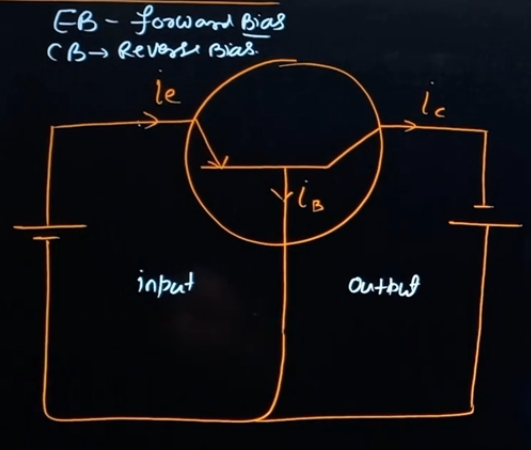 EB - forward Bias
CB → Reverse Bias.
ie
ic
iB
input
output